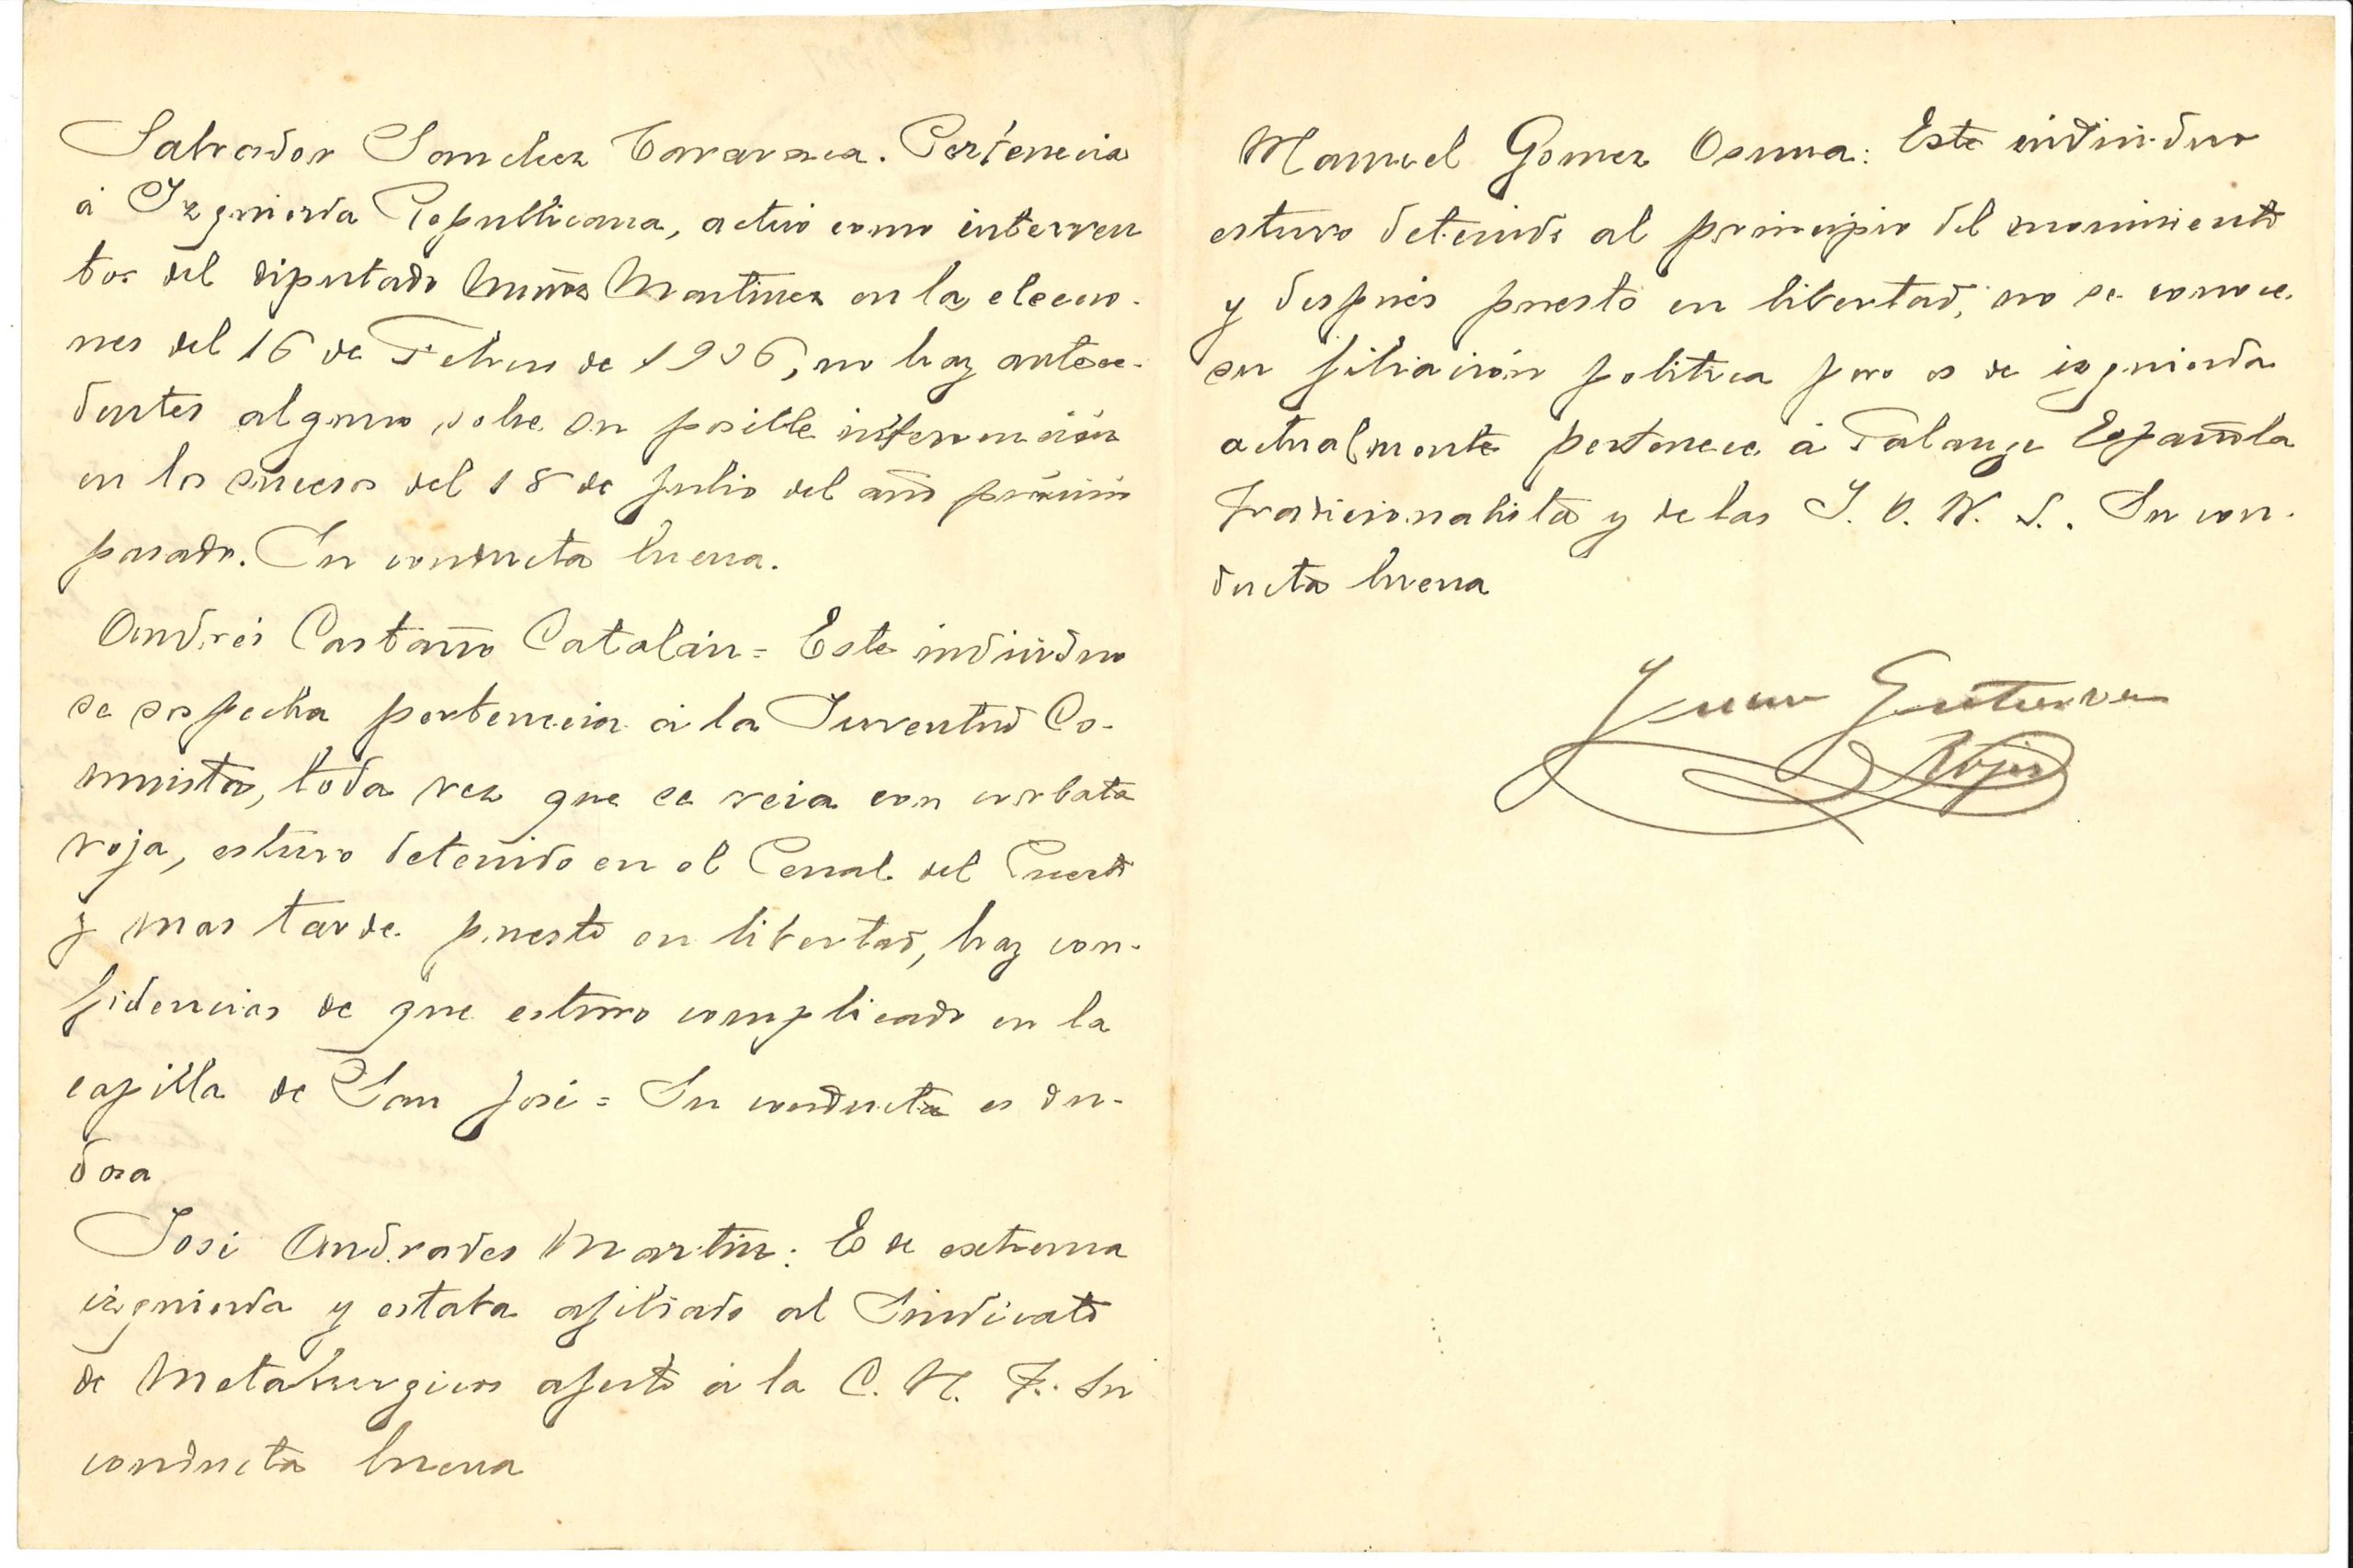 Salvador Sanchez Caravaca. Pertenecia
á Izquierda Republicana, actuó como interven
tor del diputado Muñoz Martinez en la eleccio-
nes del 16 de Febrero de 1936, no hay antece-
dentes alguno sobre su posible intervención
en los sucesos del 18 de Julio del año próximo
pasado. Su conducta buena.
Andrés Castaño Catalán = Este individuo
se sospecha pertenecia á la Juventud Co-
munista, toda vez que se veia con corbata
roja, estuvo detenido en el Penal del Puerto
y mas tarde puesto en libertad, hay con-
fidencias de que estuvo complicado en la
capilla de San José = Su conducta es du-
dosa
José Andrades Martin: Es de extrema
izquierda y estaba afiliado al Sindicato
de Metalurgicos afecto á la C. N. T. Su
conducta buena
Manuel Gomez Osuna: Este individuo
estuvo detenido al principio del movimiento
y después puesto en libertad, no se conoce
su filiación politica pero es de izquierda
actualmente pertenece á Falange Española
Tradicionalista y de las J. O. N. S.. Su con-
ducta buena
Juan Gutierrez
Rojas